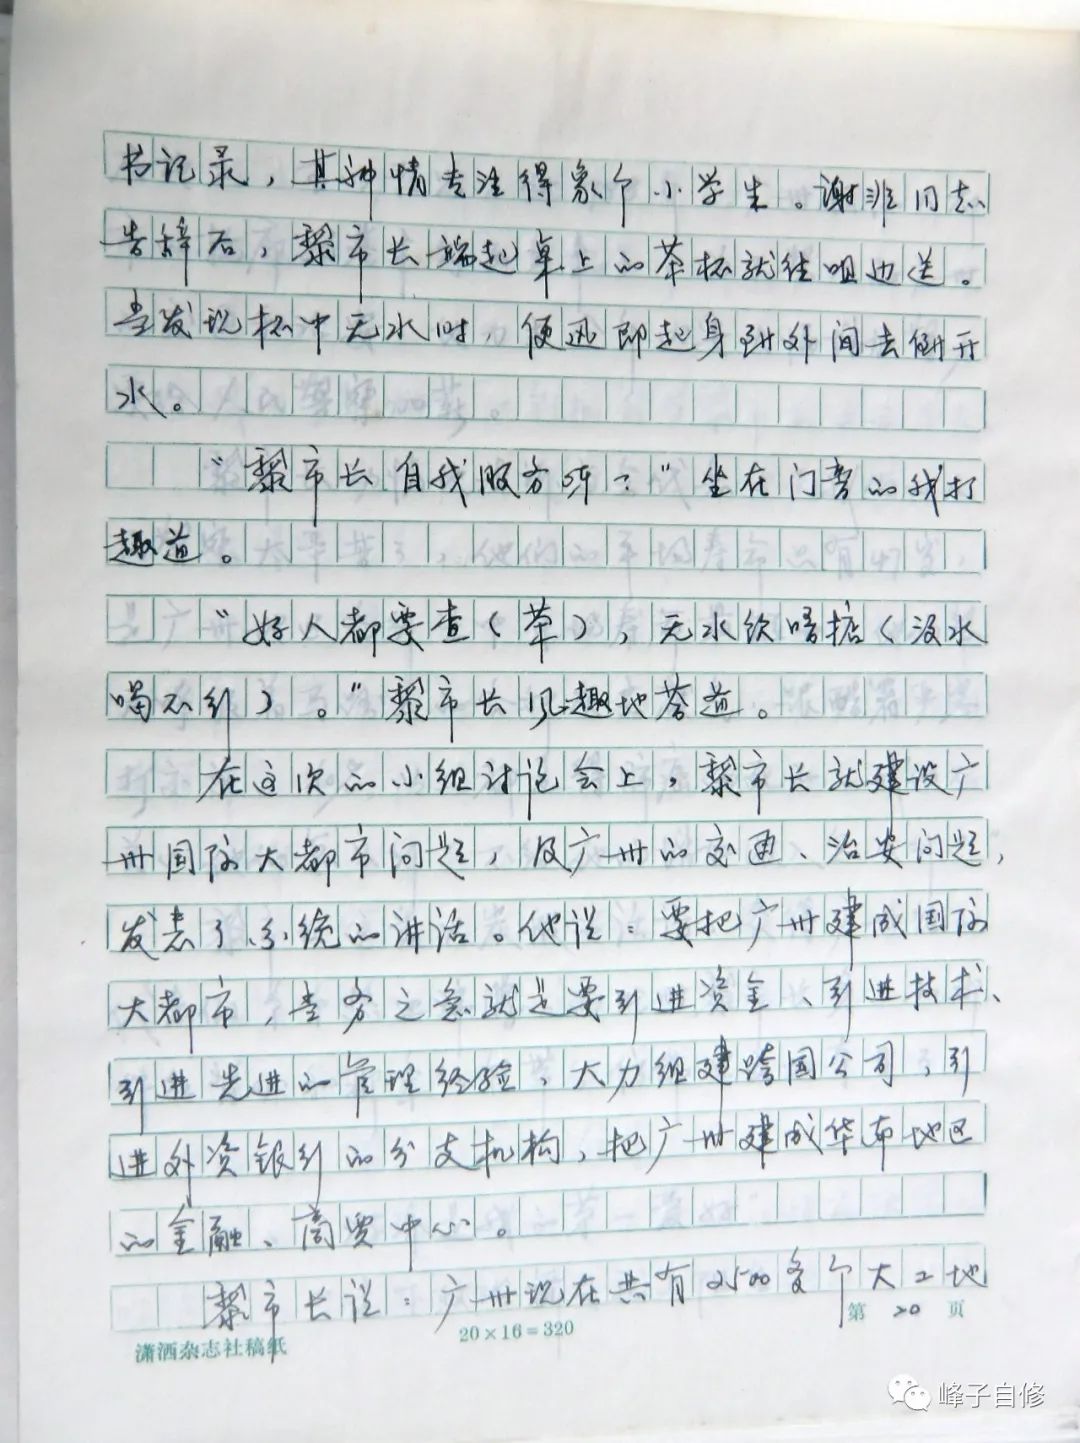 书记录，其神情专注得象个小学生。谢非同志
告辞后，黎市长端起桌上的茶杯就往咀边送。
当发现杯中无水时，便迅即起身到外间去倒开
水。
“黎市长自我服务呀？”坐在门旁的我打
趣道。
“好人都要查（茶），无水饮唔掂（没水
喝不行）。”黎市长风趣地答道。
在这次的小组讨论会上，黎市长就建设广
州国际大都市问题，及广州的交通、治安问题，
发表了系统的讲话。他说：要把广州建成国际
大都市，当务之急就是要引进资金、引进技术、
引进先进的管理经验、大力组建跨国公司，引
进外资银行的分支机构，把广州建成华南地区
的金融、商贸中心。
黎市长说：广州现在共有2500多个大工地
第20页
20×16=320
潇洒杂志社稿纸
峰子自修